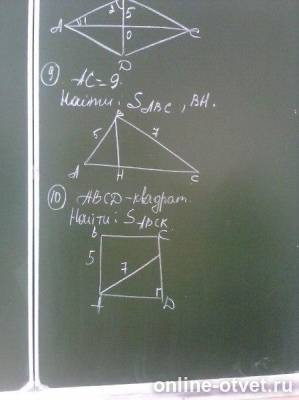 5
A 1 2 O C
D
9 AC = 9.
Найти: S ABC, BH.
B
5 7
A H C
10 ABCD - квадрат
Найти: S ABCK.
B C
5 7
A D
online-otvet.ru